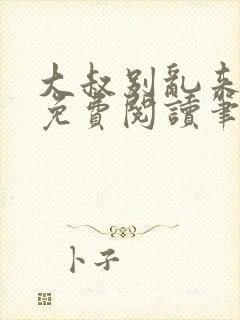 大叔别亂来
免費閱讀筆
卜子